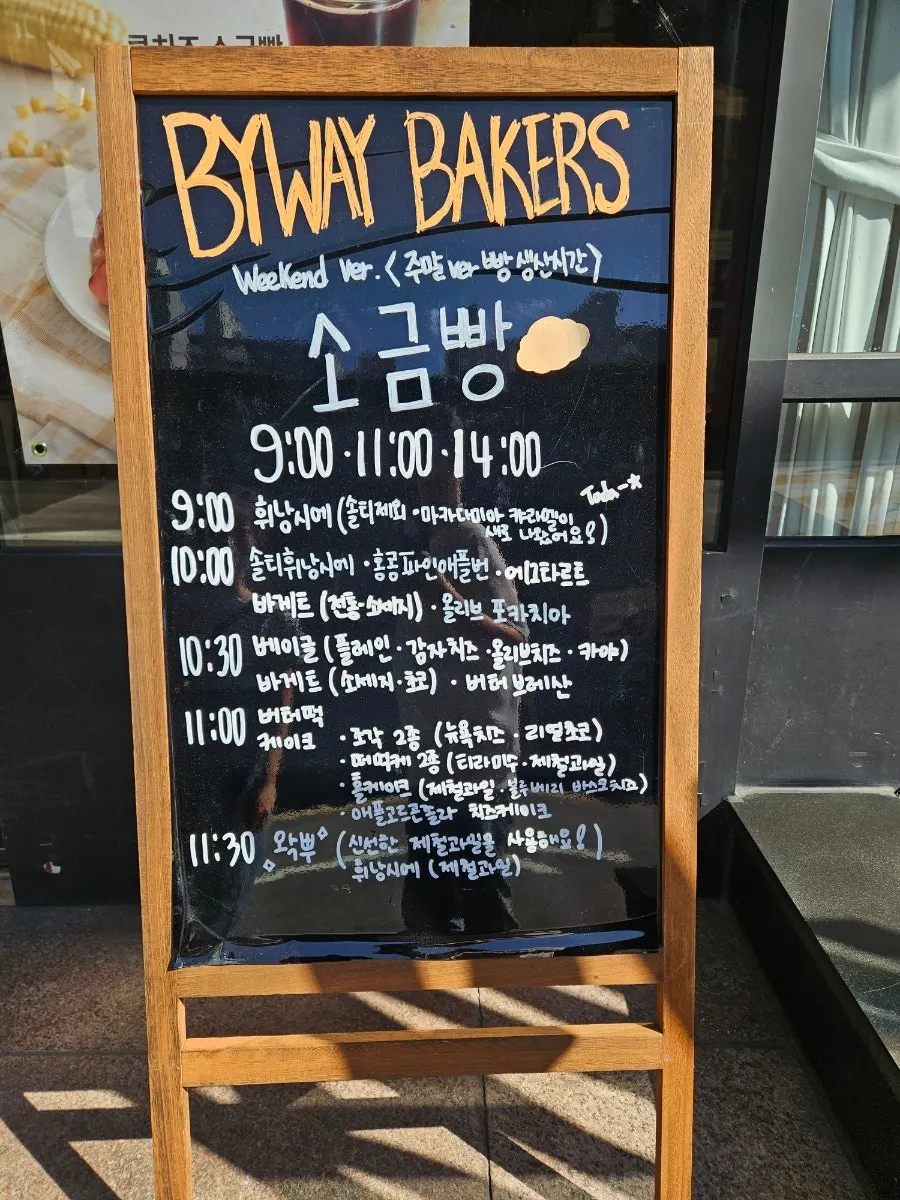 콘치즈 소금빵
BYWAY BAKERS
Weekend ver. <주말 ver 빵 생산시간>
소금빵
9:00 · 11:00 · 14:00
Tada-☆
9:00 휘낭시에 (솔티제외 · 마카다미아 캬라멜이
새로 나왔어요!)
10:00 솔티휘낭시에 · 홍콩파인애플번 · 에그타르트
바게트 (전통·소세지) · 올리브 포카치아
10:30 베이글 (플레인 · 감자치즈 · 올리브치즈 · 카야)
바게트 (소세지·초코) · 버터브레산
11:00 버터떡
케이크 · 조각 2종 (뉴욕치즈 · 리얼초코)
· 떠먹케 2종 (티라미수 · 제철과일)
· 홀케이크 (제철과일 · 블루베리 바스크치즈)
· 애플 치즈케이크
11:30 왁뿌 (신선한 제철과일을 사용해요!)
휘낭시에 (제철과일)